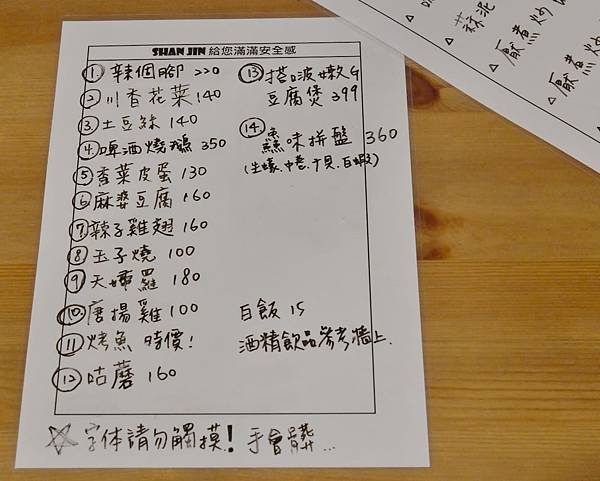 SHAN JIN 給您滿滿安全感
① 辣個腳 220
② 川香花菜 140
③ 土豆絲 140
④ 啤酒燒鵝 350
⑤ 香菜皮蛋 130
⑥ 麻婆豆腐 160
⑦ 辣子雞翅 160
⑧ 玉子燒 100
⑨ 天婦羅 180
⑩ 唐揚雞 100
⑪ 烤魚 時價!
⑫ 咕蘑 160
⑬ 搭啵嫩G
豆腐煲 399
⑭ 鱻味拼盤 360
(生蠔.中卷.干貝.白蝦)
白飯 15
酒精飲品參考牆上.
☆ 字体請勿觸摸! 手會髒...
△ 蒜泥
△ 麻煮炒
△